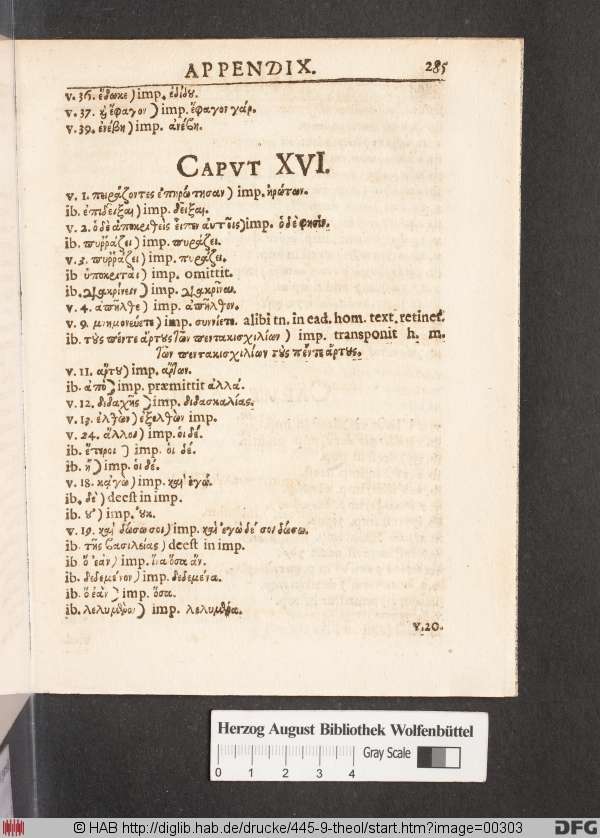 APPENDIX. 285
v. 36. ἔδωκε) imp. ἐδίδυ.
v. 37. ϗ ἔφαγον) imp. ἔφαγον γάρ.
v. 39. ἐνέβη) imp. ἀνέβη.
CAPVT XVI.
v. 1. πειράζοντες ἐπηρώτησαν) imp. ἠρώτων.
ib. ἐπιδεῖξαι) imp. δεῖξαι.
v. 2. ὁ δὲ ἀποκριθεὶς εἶπεν αὐτοῖς) imp. ὁ δὲ φησίν.
ib. πυῤῥάζει) imp. πυράζει.
v. 3. πυῤῥάζει) imp. πυράζει.
ib ὑποκριταὶ) imp. omittit.
ib. διακρίνειν) imp. διακρῖναι.
v. 4. ἀπῆλθε) imp. ἀπῆλθον.
v. 9. μνημονεύετε) imp. συνίετε. alibi tn. in ead. hom. text. retinet.
ib. τȣ̀ς πέντε ἄρτȣς τῶν πεντακισχιλίων) imp. transponit h. m.
τῶν πεντακισχιλίων τȣ̀ς πέντε ἄρτȣς.
v. 11. ἄρτȣ) imp. ἄρτων.
ib. ἀπὸ) imp. præmittit ἀλλά.
v. 12. διδαχῆς) imp. διδασκαλίας.
v. 13. ἐλθὼν) ἐξελθὼν imp.
v. 24. ἄλλοι) imp. οἱ δέ.
ib. ἕτεροι) imp. οἱ δέ.
ib. ἢ) imp. οἱ δέ.
v. 18. κἀγὼ) imp. καὶ ἐγώ.
ib. δὲ) deest in imp.
ib. ȣ̓) imp. ȣ̓κ.
v. 19. καὶ δώσω σοι) imp. καὶ ἐγὼ δέ σοι δώσω.
ib. τῆς βασιλείας) deest in imp.
ib ὃ ἐὰν) imp. ἵνα ὅσα ἂν.
ib. δεδεμένον) imp. δεδεμένα.
ib. ὃ ἐὰν) imp. ὅσα.
ib. λελυμένον) imp. λελυμένα.
v. 20.
Herzog August Bibliothek Wolfenbüttel
Gray Scale
0 1 2 3 4
© HAB http://diglib.hab.de/drucke/445-9-theol/start.htm?image=00303
DFG